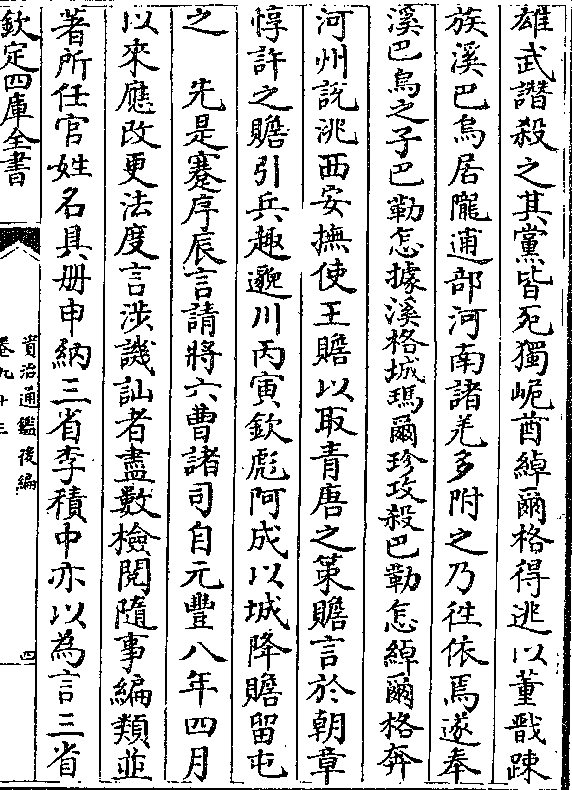 雄武譖殺之其黨皆死獨㟪酋綽爾格得逃以董戩踈
族溪巴烏居隴逋部河南諸羌多附之乃徃依焉遂奉
溪巴烏之子巴勒怎據溪格城瑪爾珍攻殺巴勒怎綽爾格奔
河州説洮西安撫使王贍以取青唐之策贍言於朝章
惇許之贍引兵趣邈川丙寅欽彪阿成以城降贍留屯
之　先是蹇序辰言請將六曹諸司自元豐八年四月
以來應改更法度言涉譏訕者盡數檢閲隨事編類並
著所任官姓名具册申納三省李積中亦以為言三省
欽定四庫全書
資治通鑑後編
卷九十三
四